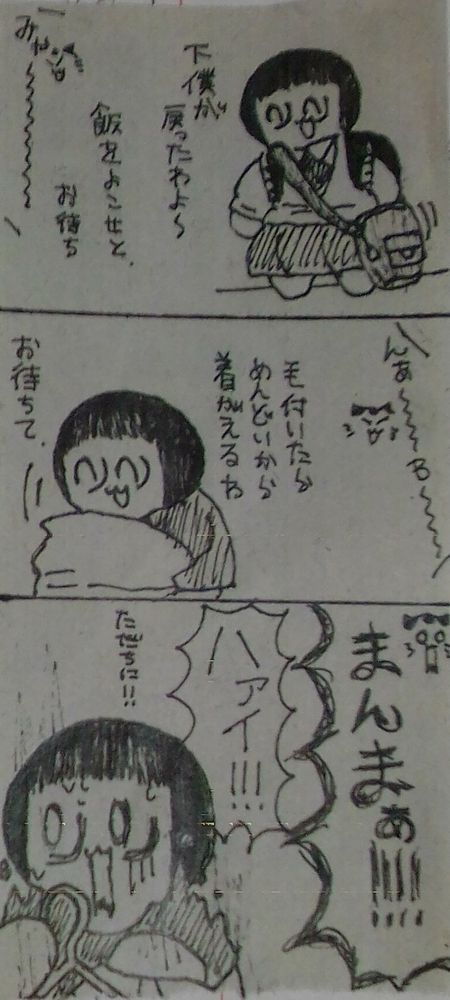 下僕が
戻ったわよ〜
飯をよこせと、
お待ち
みゃ〜〜〜〜
んぁ〜〜〜ぉ〜〜〜
毛付いたら
めんどいから
着がえるわ
お待ちて、
まんまぁ!!!!
ハァイ!!!
ただちに!!